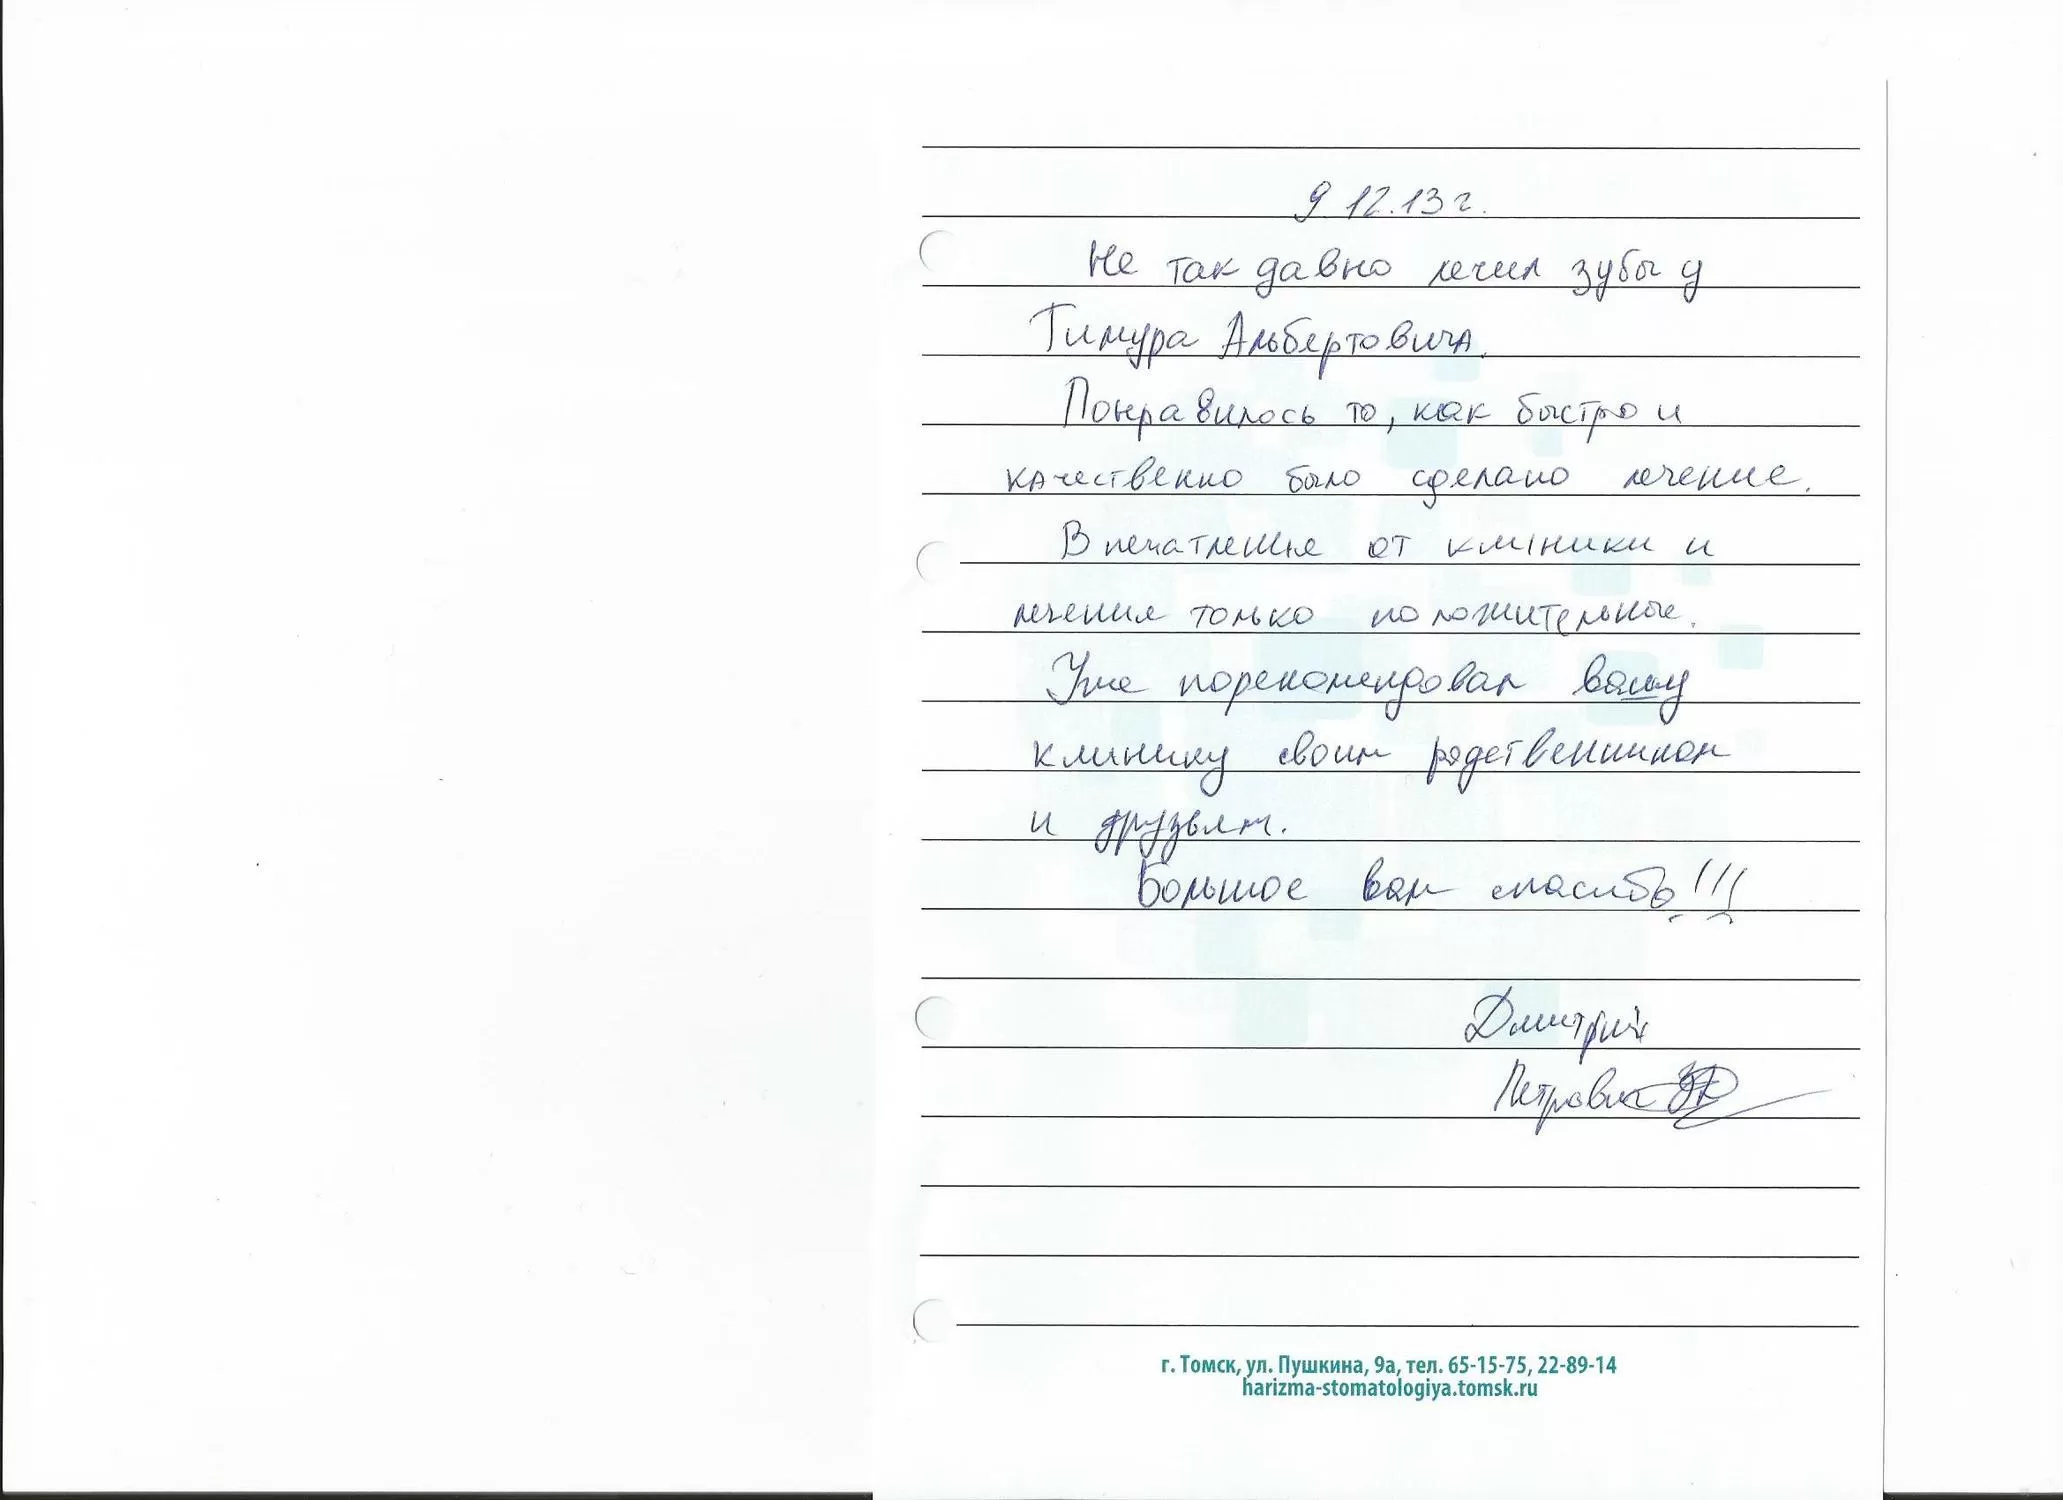 9.12.13 г.
Не так давно лечил зубы у
Тимура Альбертовича.
Понравилось то, как быстро и
качественно было сделано лечение.
Впечатление от клиники и
лечения только положительные.
Уже порекомендовал вашу
клинику своим родственникам
и друзьям.
Большое вам спасибо!!!
Дмитрий
Петрович
г. Томск, ул. Пушкина, 9а, тел. 65-15-75, 22-89-14
harizma-stomatologiya.tomsk.ru